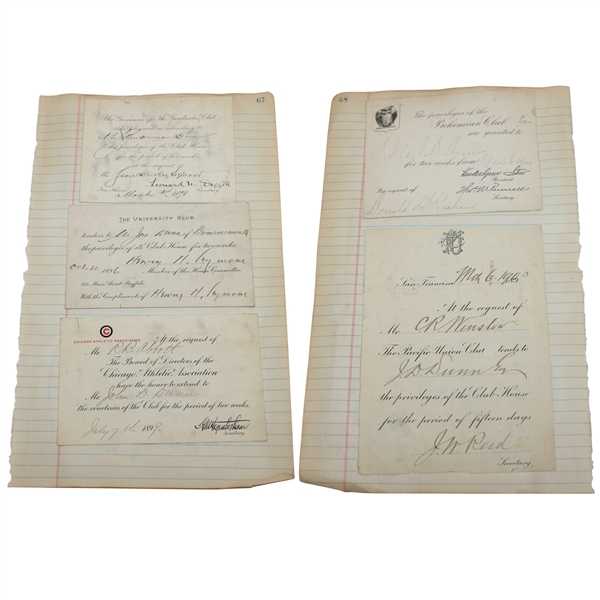 67
The Governors of the Graduates Club
the privileges of the Club House
for the period of two weeks
at the request of
Mr
March 2nd 1898
Secretary
THE UNIVERSITY CLUB
tenders to Mr Jno Dunn of Bournemouth
the privileges of its Club House for two weeks
Oct. 30 1896 Henry H. Seymour
Member of the House Committee
Main Street Buffalo
With the Compliments of Henry H. Seymour
CHICAGO ATHLETIC ASSOCIATION
C
At the request of
Mr R B Abbott
The Board of Directors of the
Chicago Athletic Association
have the honor to extend to
Mr John D Dunn
the courtesies of the Club for the period of two weeks.
July 7th 1899
Secretary
68
The privileges of the
Bohemian Club
are granted to
for two weeks from
President
By request of
Secretary
San Francisco Mch 6
At the request of
Mr. C R Winslow
The Pacific Union Club tends to
J. D. Dunn Esq
the privileges of the Club House
for the period of fifteen days
J. W. Reid
Secretary